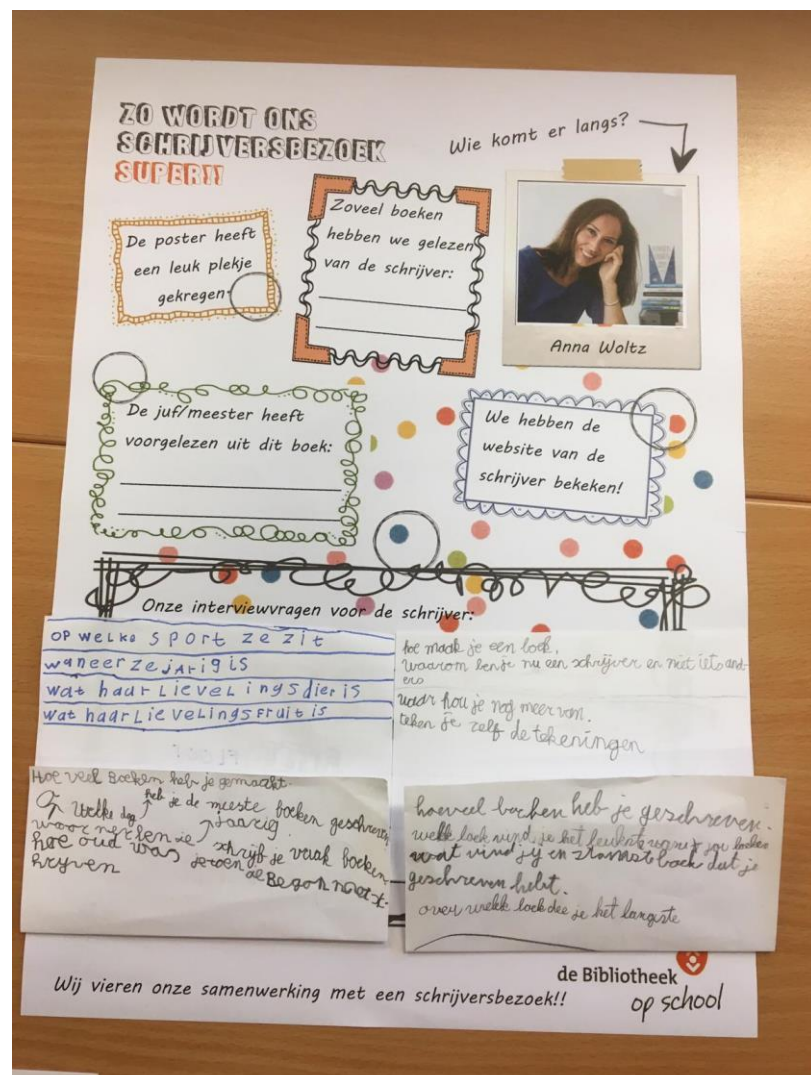 ZO WORDT ONS
SCHRIJVERSBEZOEK
SUPER!!
Wie komt er langs?
De poster heeft
een leuk plekje
gekregen
Zoveel boeken
hebben we gelezen
van de schrijver:
Anna Woltz
De juf/meester heeft
voorgelezen uit dit boek:
We hebben de
website van de
schrijver bekeken!
Onze interviewvragen voor de schrijver:
OP welke sport ze zit
waneer ze jarig is
wat haar Lievelingsdier is
wat haar Lievelingsfruit is
hoe maak je een boek.
waarom ben je nu een schrijver en niet iets and-
ers
waar hou je nog meer van.
teken je zelf de tekeningen
Hoe veel Boeken heb je gemaakt.
Op welke dag heb je de meeste boeken geschreven
jaarig.
schrijf je vaak boeken
hoe oud was je toen je Begon met
hoeveel boeken heb je geschreven.
welk boek vind je het leukste van jou boeken
wat vind jij en stomst boek dat je
geschreven hebt.
over welk boek dee je het langste
de Bibliotheek
op school
Wij vieren onze samenwerking met een schrijversbezoek!!